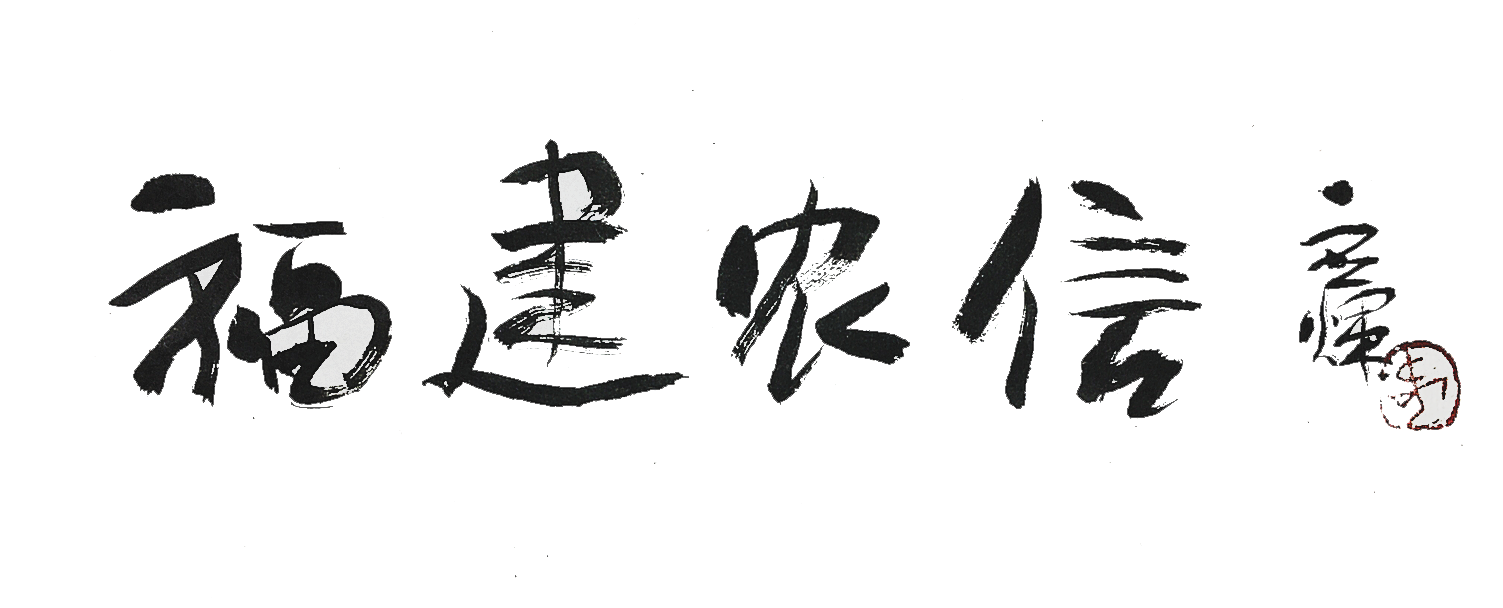 福建农信